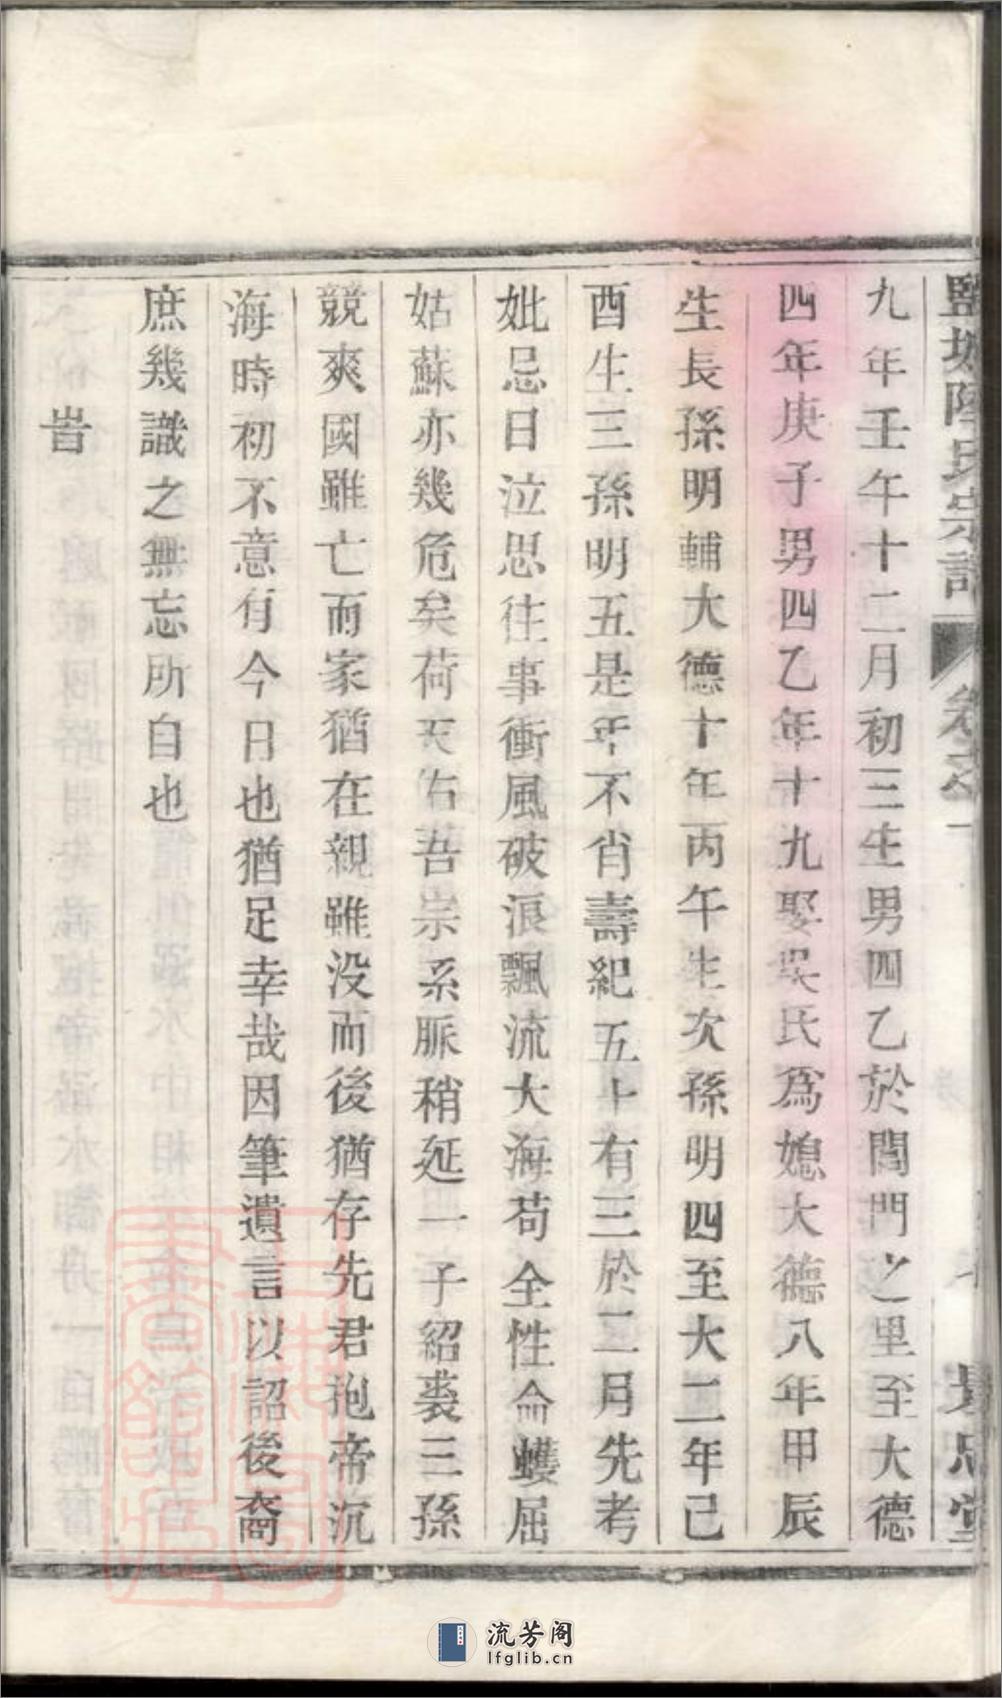 鹽城陸氏宗譜 卷之一
九年壬午十二月初三生男四乙於閶門之里至大德
四年庚子男四乙年十九娶吳氏爲媳大德八年甲辰
生長孫明輔大德十年丙午生次孫明四至大二年己
酉生三孫明五是年不肖壽紀五十有三於二月先考
妣忌日泣思往事衝風破浪飄流大海苟全性命蠖屈
姑蘇亦幾危矣荷天右吾崇系脈稍延一子紹裘三孫
競爽國雖亡而家猶在親雖没而後猶存先君抱帝沉
海時初不意有今日也猶足幸哉因筆遺言以詔後裔
庶幾識之無忘所自也
旹
流芳阁
lfglib.cn